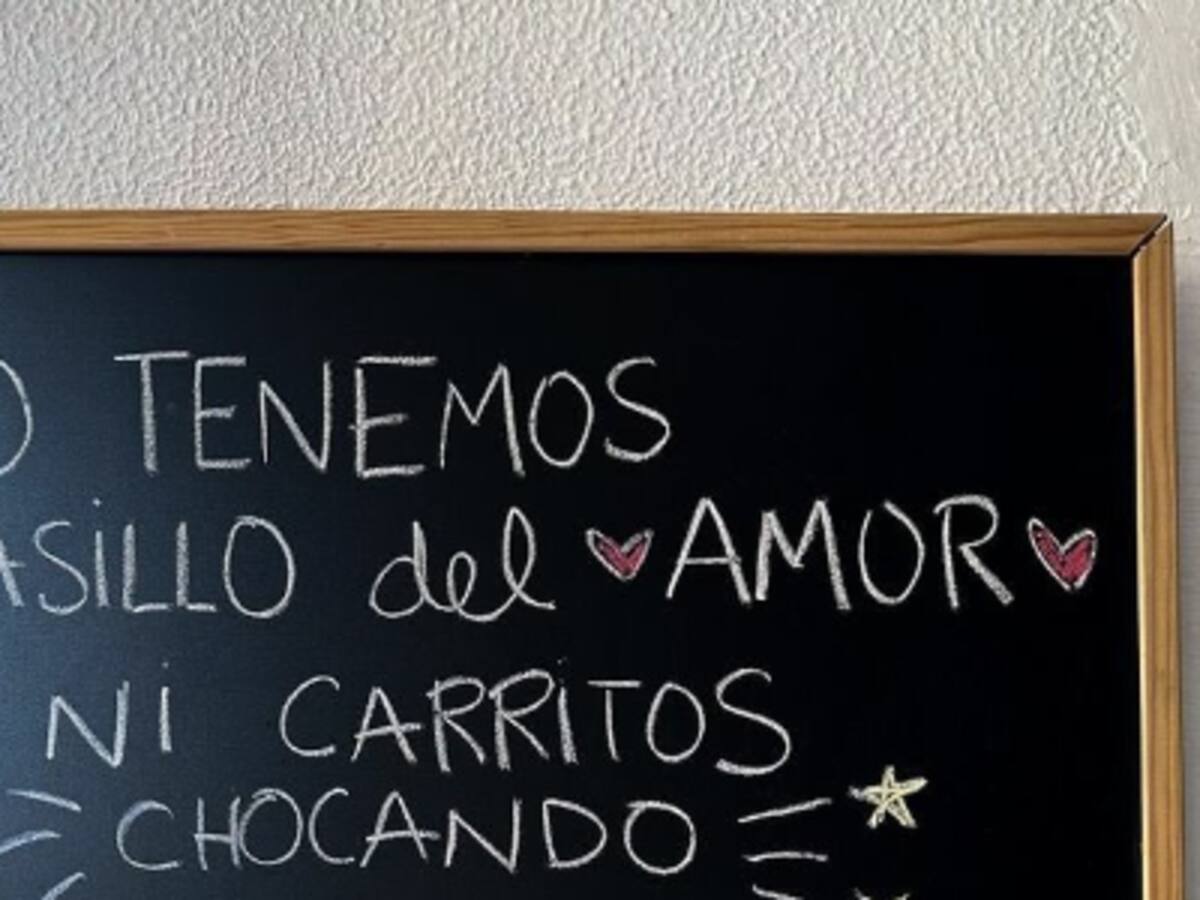 TENEMOS
del AMOR
Ni CARRiTOS
CHOCANDO